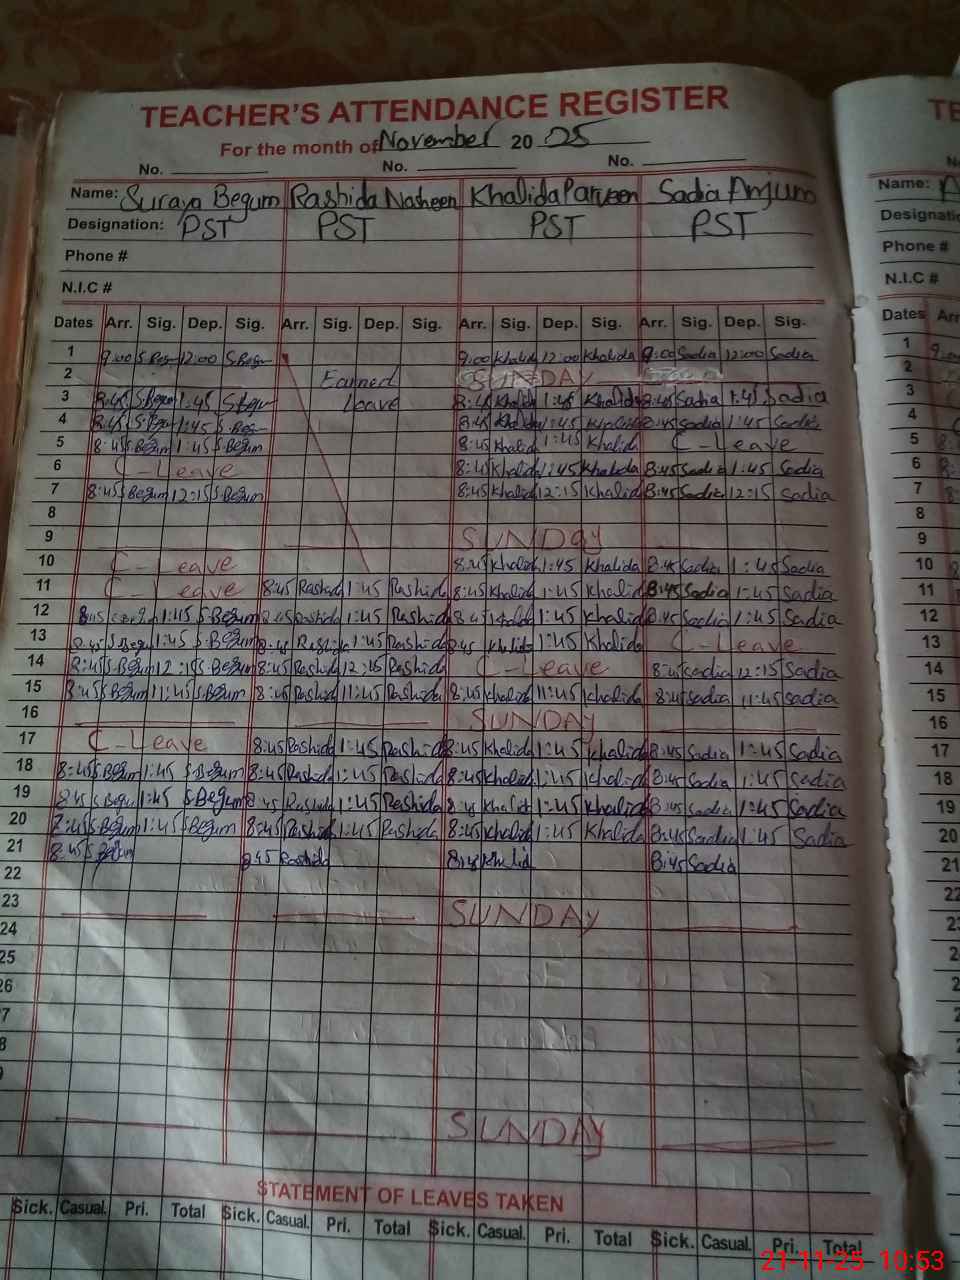 TEACHER'S ATTENDANCE REGISTER
For the month of November 20 25
No. No. No.
Name: Suraya Begum Rashida Nasheen Khalida Parveen Sadia Anjum
Designation: PST PST PST PST
Phone #
N.I.C #
Dates Arr. Sig. Dep. Sig. Arr. Sig. Dep. Sig. Arr. Sig. Dep. Sig. Arr. Sig. Dep. Sig.
1 9:00 S.Begu 12:00 S.Begu 9:00 Khalida 12:00 Khalida 9:00 Sadia 12:00 Sadia
2 Earned SUNDAY
3 8:45 S.Begum 1:45 S.Begu Leave 8:45 Khalida 1:45 Khalida 8:45 Sadia 1:45 Sadia
4 8:45 S.Begu 1:45 S.Begu 8:45 Khalida 1:45 Khalida 8:45 Sadia 1:45 Sadia
5 8:45 S.Begum 1:45 S.Begum 8:45 Khalid 1:45 Khalid C-Leave
6 C-Leave 8:45 Khalida 1:45 Khalida 8:45 Sadia 1:45 Sadia
7 8:45 S.Begum 12:15 S.Begum 8:45 Khalid 12:15 Khalid 8:45 Sadia 12:15 Sadia
8
9 SUNDAY
10 C-Leave 8:45 Khalid 1:45 Khalida 8:45 Sadia 1:45 Sadia
11 C-Leave 8:45 Rashid 1:45 Rashid 8:45 Khalid 1:45 Khalid 8:45 Sadia 1:45 Sadia
12 8:45 1:45 S.Begum 8:45 Rashida 1:45 Rashid 8:45 Khalid 1:45 Khalida 8:45 Sadia 1:45 Sadia
13 8:45 S.Begu 1:45 S.Begum 8:45 Rashida 1:45 Rashida 8:45 Khalida 1:45 Khalida C-Leave
14 8:45 S.Begum 12:15 S.Begum 8:45 Rashid 12:15 Rashid C-Leave 8:45 Sadia 12:15 Sadia
15 8:45 S.Begum 11:45 S.Begum 8:45 Rashid 11:45 Rashida 8:45 Khalid 11:45 Khalida 8:45 Sadia 11:45 Sadia
16 SUNDAY
17 C-Leave 8:45 Rashid 1:45 Rashid 8:45 Khalid 1:45 Khalid 8:45 Sadia 1:45 Sadia
18 8:45 S.Begum 1:45 S.Begum 8:45 Rashid 1:45 Rashida 8:45 Khalid 1:45 Khalida 8:45 Sadia 1:45 Sadia
19 8:45 S.Begu 1:45 S.Begum 8:45 Rashid 1:45 Rashida 8:45 Khalid 1:45 Khalida 8:45 Sadia 1:45 Sadia
20 7:45 S.Begum 1:45 S.Begum 8:45 Rashid 1:45 Rashida 8:45 Khalid 1:45 Khalida 8:45 Sadia 1:45 Sadia
21 8:45 S.Begum 8:45 Rashid 8:45 Khalid 8:45 Sadia
22
23 SUNDAY
24
25
26
7
8
SUNDAY
STATEMENT OF LEAVES TAKEN
Sick. Casual. Pri. Total Sick. Casual. Pri. Total Sick. Casual. Pri. Total Sick. Casual. Pri. Total
TE
Name:
Designati
Phone #
N.I.C #
Dates Arr
1
2
3
4
5
6
7
8
9
10
11
12
13
14
15
16
17
18
19
20
21
22
21-11-25 10:53